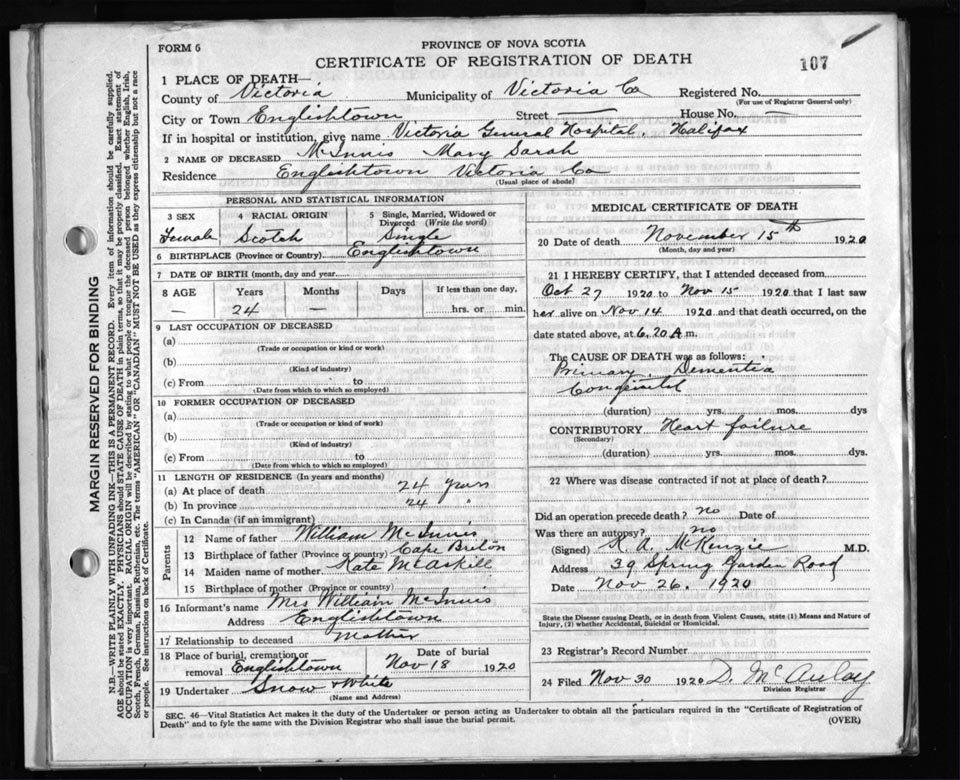 FORM 6
PROVINCE OF NOVA SCOTIA
CERTIFICATE OF REGISTRATION OF DEATH
107
1 PLACE OF DEATH—
County of Victoria Municipality of Victoria Co Registered No.
(For use of Registrar General only)
City or Town Englishtown Street — House No. —
If in hospital or institution, give name Victoria General Hospital, Halifax
2 NAME OF DECEASED McInnis Mary Sarah
Residence Englishtown Victoria Co
(Usual place of abode)
PERSONAL AND STATISTICAL INFORMATION
3 SEX 4 RACIAL ORIGIN 5 Single, Married, Widowed or Divorced (Write the word)
Female Scotch Single
6 BIRTHPLACE (Province or Country) Englishtown
7 DATE OF BIRTH (month, day and year)
8 AGE Years Months Days If less than one day,
— 24 — hrs. or min.
9 LAST OCCUPATION OF DECEASED
(a)
(Trade or occupation or kind or work)
(b)
(Kind of industry)
(c) From to
(Date from which to which so employed)
10 FORMER OCCUPATION OF DECEASED
(a)
(Trade or occupation or kind of work)
(b)
(Kind of industry)
(c) From to
(Date from which to which so employed)
11 LENGTH OF RESIDENCE (In years and months)
(a) At place of death 24 years
(b) In province 24 "
(c) In Canada (if an immigrant)
Parents
12 Name of father William McInnis
13 Birthplace of father (Province or country) Cape Breton
14 Maiden name of mother Kate McAskill
15 Birthplace of mother (Province or country)
16 Informant's name Mrs William McInnis
Address Englishtown
17 Relationship to deceased Mother
18 Place of burial, cremation or removal Englishtown Date of burial Nov 18 1920
19 Undertaker Snow & White
(Name and Address)
MEDICAL CERTIFICATE OF DEATH
20 Date of death November 15th 1920
(Month, day and year)
21 I HEREBY CERTIFY, that I attended deceased from
Oct 27 1920 to Nov 15 1920 that I last saw
her alive on Nov 14 1920 and that death occurred, on the
date stated above, at 6.20 A m.
The CAUSE OF DEATH was as follows:
Primary. Dementia
Congenital
(duration) yrs. mos. dys
CONTRIBUTORY Heart failure
(Secondary)
(duration) yrs. mos. dys.
22 Where was disease contracted if not at place of death?
Did an operation precede death? no Date of
Was there an autopsy? no
(Signed) A. A. McKenzie M.D.
Address 39 Spring Garden Road
Date Nov 26. 1920
State the Disease causing Death, or in death from Violent Causes, state (1) Means and Nature of
Injury, (2) whether Accidental, Suicidal or Homicidal.
23 Registrar's Record Number
24 Filed Nov 30 1920 D. McAulay
Division Registrar
SEC. 46—Vital Statistics Act makes it the duty of the Undertaker or person acting as Undertaker to obtain all the particulars required in the "Certificate of Registration of
Death" and to fyle the same with the Division Registrar who shall issue the burial permit.
(OVER)
MARGIN RESERVED FOR BINDING
N.B.—WRITE PLAINLY WITH UNFADING INK—THIS IS A PERMANENT RECORD. Every item of information should be carefully supplied.
AGE should be stated EXACTLY. PHYSICIANS should STATE CAUSE OF DEATH in plain terms, so that it may be properly classified. Exact statement of
OCCUPATION is very important. RACIAL ORIGIN will be described by stating to what people or tongue the deceased person belonged whether English, Irish,
Scotch, French, German, Russian, Ruthenian, etc. The terms "AMERICAN" OR "CANADIAN" MUST NOT BE USED as they express citizenship but not a race
or people. See instructions on back of Certificate.